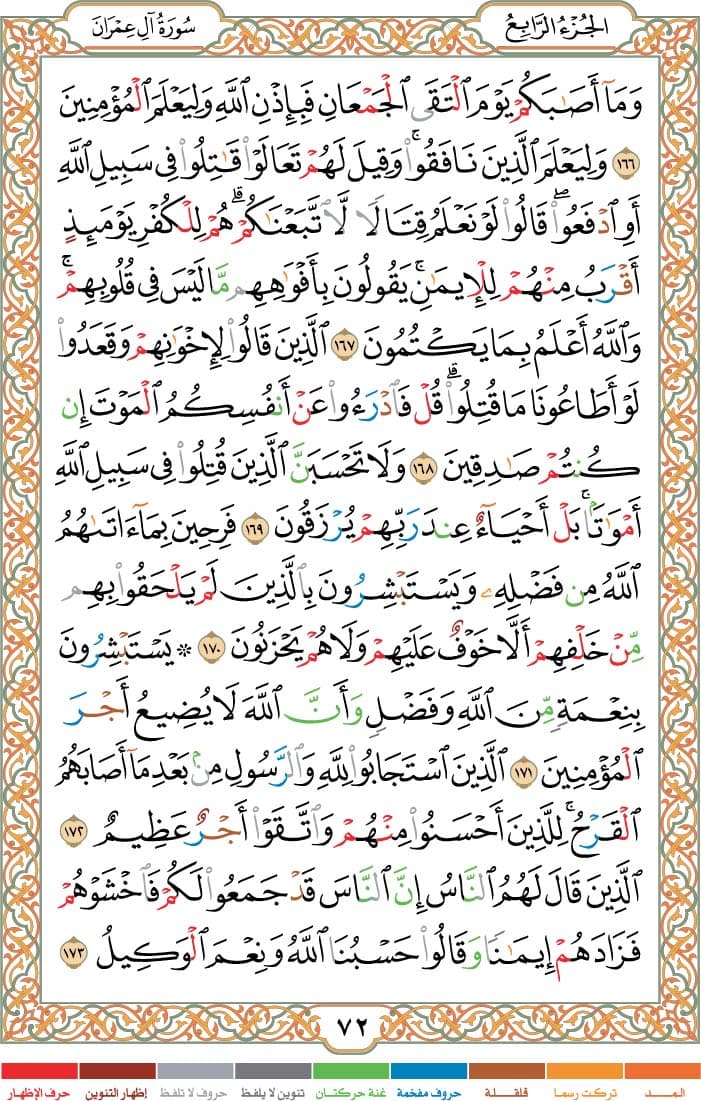 الجُزْءُ الرَّابِعُ
سُورَةُ آلِ عِمْرَانَ
وَمَآ أَصَٰبَكُمْ يَوْمَ ٱلْتَقَى ٱلْجَمْعَانِ فَبِإِذْنِ ٱللَّهِ وَلِيَعْلَمَ ٱلْمُؤْمِنِينَ
١٦٦ وَلِيَعْلَمَ ٱلَّذِينَ نَافَقُوا۟ۚ وَقِيلَ لَهُمْ تَعَالَوْا۟ قَٰتِلُوا۟ فِى سَبِيلِ ٱللَّهِ
أَوِ ٱدْفَعُوا۟ۖ قَالُوا۟ لَوْ نَعْلَمُ قِتَالًا لَّٱتَّبَعْنَٰكُمْۗ هُمْ لِلْكُفْرِ يَوْمَئِذٍ
أَقْرَبُ مِنْهُمْ لِلْإِيمَٰنِۚ يَقُولُونَ بِأَفْوَٰهِهِم مَّا لَيْسَ فِى قُلُوبِهِمْۚ
وَٱللَّهُ أَعْلَمُ بِمَا يَكْتُمُونَ ١٦٧ ٱلَّذِينَ قَالُوا۟ لِإِخْوَٰنِهِمْ وَقَعَدُوا۟
لَوْ أَطَاعُونَا مَا قُتِلُوا۟ۗ قُلْ فَٱدْرَءُوا۟ عَنْ أَنفُسِكُمُ ٱلْمَوْتَ إِن
كُنتُمْ صَٰدِقِينَ ١٦٨ وَلَا تَحْسَبَنَّ ٱلَّذِينَ قُتِلُوا۟ فِى سَبِيلِ ٱللَّهِ
أَمْوَٰتًۢاۚ بَلْ أَحْيَآءٌ عِندَ رَبِّهِمْ يُرْزَقُونَ ١٦٩ فَرِحِينَ بِمَآ ءَاتَىٰهُمُ
ٱللَّهُ مِن فَضْلِهِۦ وَيَسْتَبْشِرُونَ بِٱلَّذِينَ لَمْ يَلْحَقُوا۟ بِهِم
مِّنْ خَلْفِهِمْ أَلَّا خَوْفٌ عَلَيْهِمْ وَلَا هُمْ يَحْزَنُونَ ١٧٠ ۞ يَسْتَبْشِرُونَ
بِنِعْمَةٍ مِّنَ ٱللَّهِ وَفَضْلٍ وَأَنَّ ٱللَّهَ لَا يُضِيعُ أَجْرَ
ٱلْمُؤْمِنِينَ ١٧١ ٱلَّذِينَ ٱسْتَجَابُوا۟ لِلَّهِ وَٱلرَّسُولِ مِنۢ بَعْدِ مَآ أَصَابَهُمُ
ٱلْقَرْحُۚ لِلَّذِينَ أَحْسَنُوا۟ مِنْهُمْ وَٱتَّقَوْا۟ أَجْرٌ عَظِيمٌ ١٧٢
ٱلَّذِينَ قَالَ لَهُمُ ٱلنَّاسُ إِنَّ ٱلنَّاسَ قَدْ جَمَعُوا۟ لَكُمْ فَٱخْشَوْهُمْ
فَزَادَهُمْ إِيمَٰنًا وَقَالُوا۟ حَسْبُنَا ٱللَّهُ وَنِعْمَ ٱلْوَكِيلُ ١٧٣
٧٢
المـــد
تركت رسما
قلقلة
حروف مفخمة
غنة حركتان
تنوين لا يلفظ
حروف لا تلفظ
إظهار التنوين
حرف الإظهار